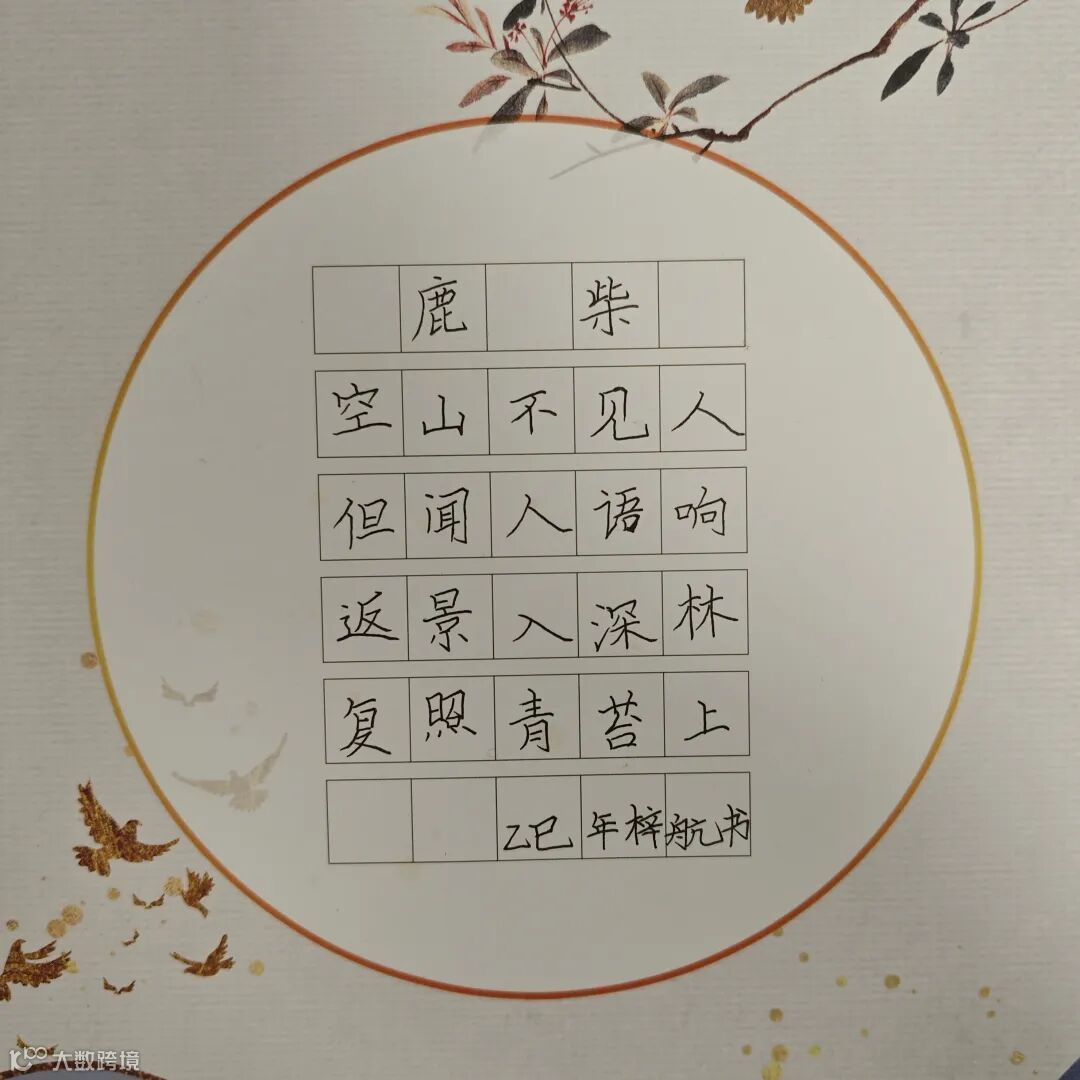 鹿柴
空山不见人
但闻人语响
返景入深林
复照青苔上
乙巳年梓航书
大数跨境